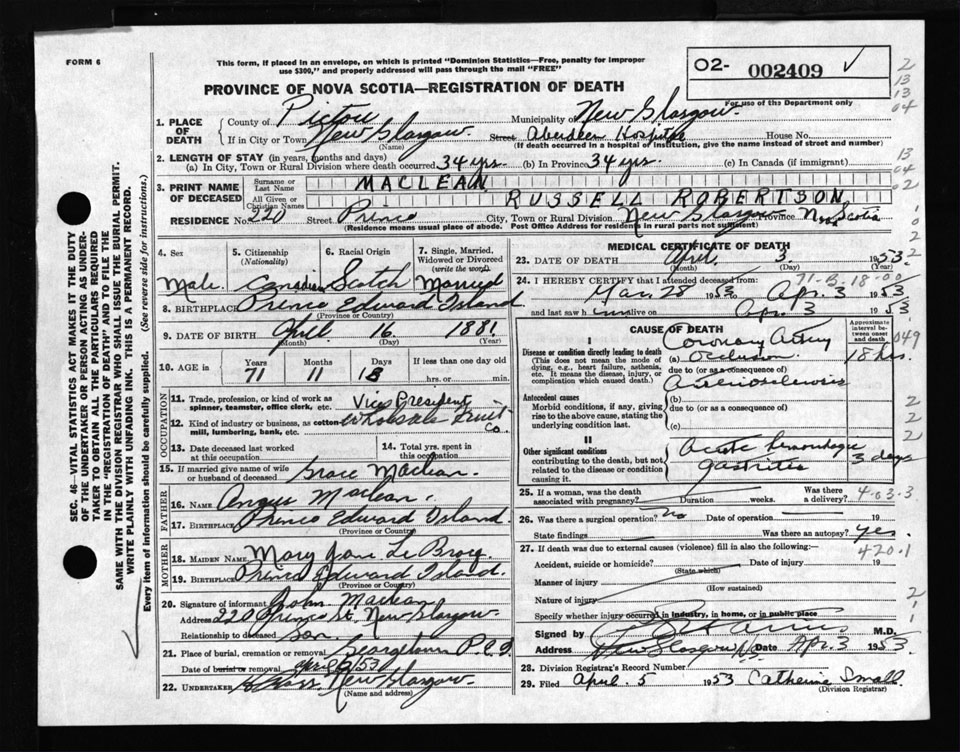 FORM 6
This form, if placed in an envelope, on which is printed "Dominion Statistics—Free, penalty for improper
use $300," and properly addressed will pass through the mail "FREE"
O2- 002409 ✓
For use of the Department only
PROVINCE OF NOVA SCOTIA—REGISTRATION OF DEATH
2
13
13
04
13
04
02
1. PLACE OF DEATH
County of Pictou Municipality of New Glasgow
If in City or Town New Glasgow Street Aberdeen Hospital House No.
(Name) (If death occurred in a hospital of institution, give the name instead of street and number)
2. LENGTH OF STAY (in years, months and days)
(a) In City, Town or Rural Division where death occurred 34 yrs. (b) In Province 34 yrs. (c) In Canada (if immigrant)
3. PRINT NAME OF DECEASED
Surname or Last Name MACLEAN
All Given or Christian Names RUSSELL ROBERTSON
RESIDENCE No. 220 Street Prince City, Town or Rural Division New Glasgow Province Nova Scotia
(Residence means usual place of abode. Post Office Address for residents in rural parts not sufficient)
4. Sex
Male
5. Citizenship (Nationality)
Canadian
6. Racial Origin
Scotch
7. Single, Married, Widowed or Divorced (write the word)
Married
8. BIRTHPLACE Prince Edward Island
(Province or Country)
9. DATE OF BIRTH April 16 1881
(Month) (Day) (Year)
10. AGE in
Years 71
Months 11
Days 18
If less than one day old
hrs. or min.
OCCUPATION
11. Trade, profession, or kind of work as spinner, teamster, office clerk, etc. Vice President
12. Kind of industry or business, as cotton mill, lumbering, bank, etc. Wholesale Fruit Co.
13. Date deceased last worked at this occupation
14. Total yrs. spent in this occupation
15. If married give name of wife or husband of deceased Grace Maclean
FATHER
16. Name Angus Maclean
17. Birthplace Prince Edward Island
(Province or Country)
MOTHER
18. MAIDEN NAME Mary Jane
19. BIRTHPLACE Prince Edward Island
(Province or Country)
20. Signature of informant John Maclean
Address 220 Prince St. New Glasgow
Relationship to deceased son
21. Place of burial, cremation or removal Georgetown P.E.I.
Date of burial or removal April 53
22. UNDERTAKER New Glasgow
(Name and address)
MEDICAL CERTIFICATE OF DEATH
23. DATE OF DEATH April 3 1953
(Month) (Day) (Year)
24. I HEREBY CERTIFY that I attended deceased from
71-B.18-00
Mar. 28 1953 to Apr. 3 1953
and last saw him alive on Apr. 3 1953
CAUSE OF DEATH
Approximate interval between onset and death
I
Disease or condition directly leading to death
(This does not mean the mode of dying, e.g., heart failure, asthenia, etc. It means the disease, injury, or complication which caused death.)
(a) Coronary Artery Occlusion 18 hrs.
due to (or as a consequence of)
Antecedent causes
Morbid conditions, if any, giving rise to the above cause, stating the underlying condition last.
(b) Arteriosclerosis
due to (or as a consequence of)
(c)
II
Other significant conditions
contributing to the death, but not related to the disease or condition causing it.
Acute hemorrhagic gastritis 3 days
25. If a woman, was the death associated with pregnancy? Duration weeks. Was there a delivery?
4-03.3
26. Was there a surgical operation? No Date of operation 19
State findings Was there an autopsy? Yes.
27. If death was due to external causes (violence) fill in also the following:
420.1
Accident, suicide or homicide? Date of injury 19
(State which)
Manner of injury
(How sustained)
Nature of injury
Specify whether injury occurred in industry, in home, or in public place
Signed by M.D.
Address New Glasgow NS Date Apr. 3 1953
28. Division Registrar's Record Number
29. Filed April 5 1953 Catherine Small
(Division Registrar)
SEC. 46—VITAL STATISTICS ACT MAKES IT THE DUTY
OF THE UNDERTAKER OR PERSON ACTING AS UNDER-
TAKER TO OBTAIN ALL THE PARTICULARS REQUIRED
IN THE "REGISTRATION OF DEATH" AND TO FILE THE
SAME WITH THE DIVISION REGISTRAR WHO SHALL ISSUE THE BURIAL PERMIT.
WRITE PLAINLY WITH UNFADING INK. THIS IS A PERMANENT RECORD.
Every item of information should be carefully supplied. (See reverse side for instructions.)